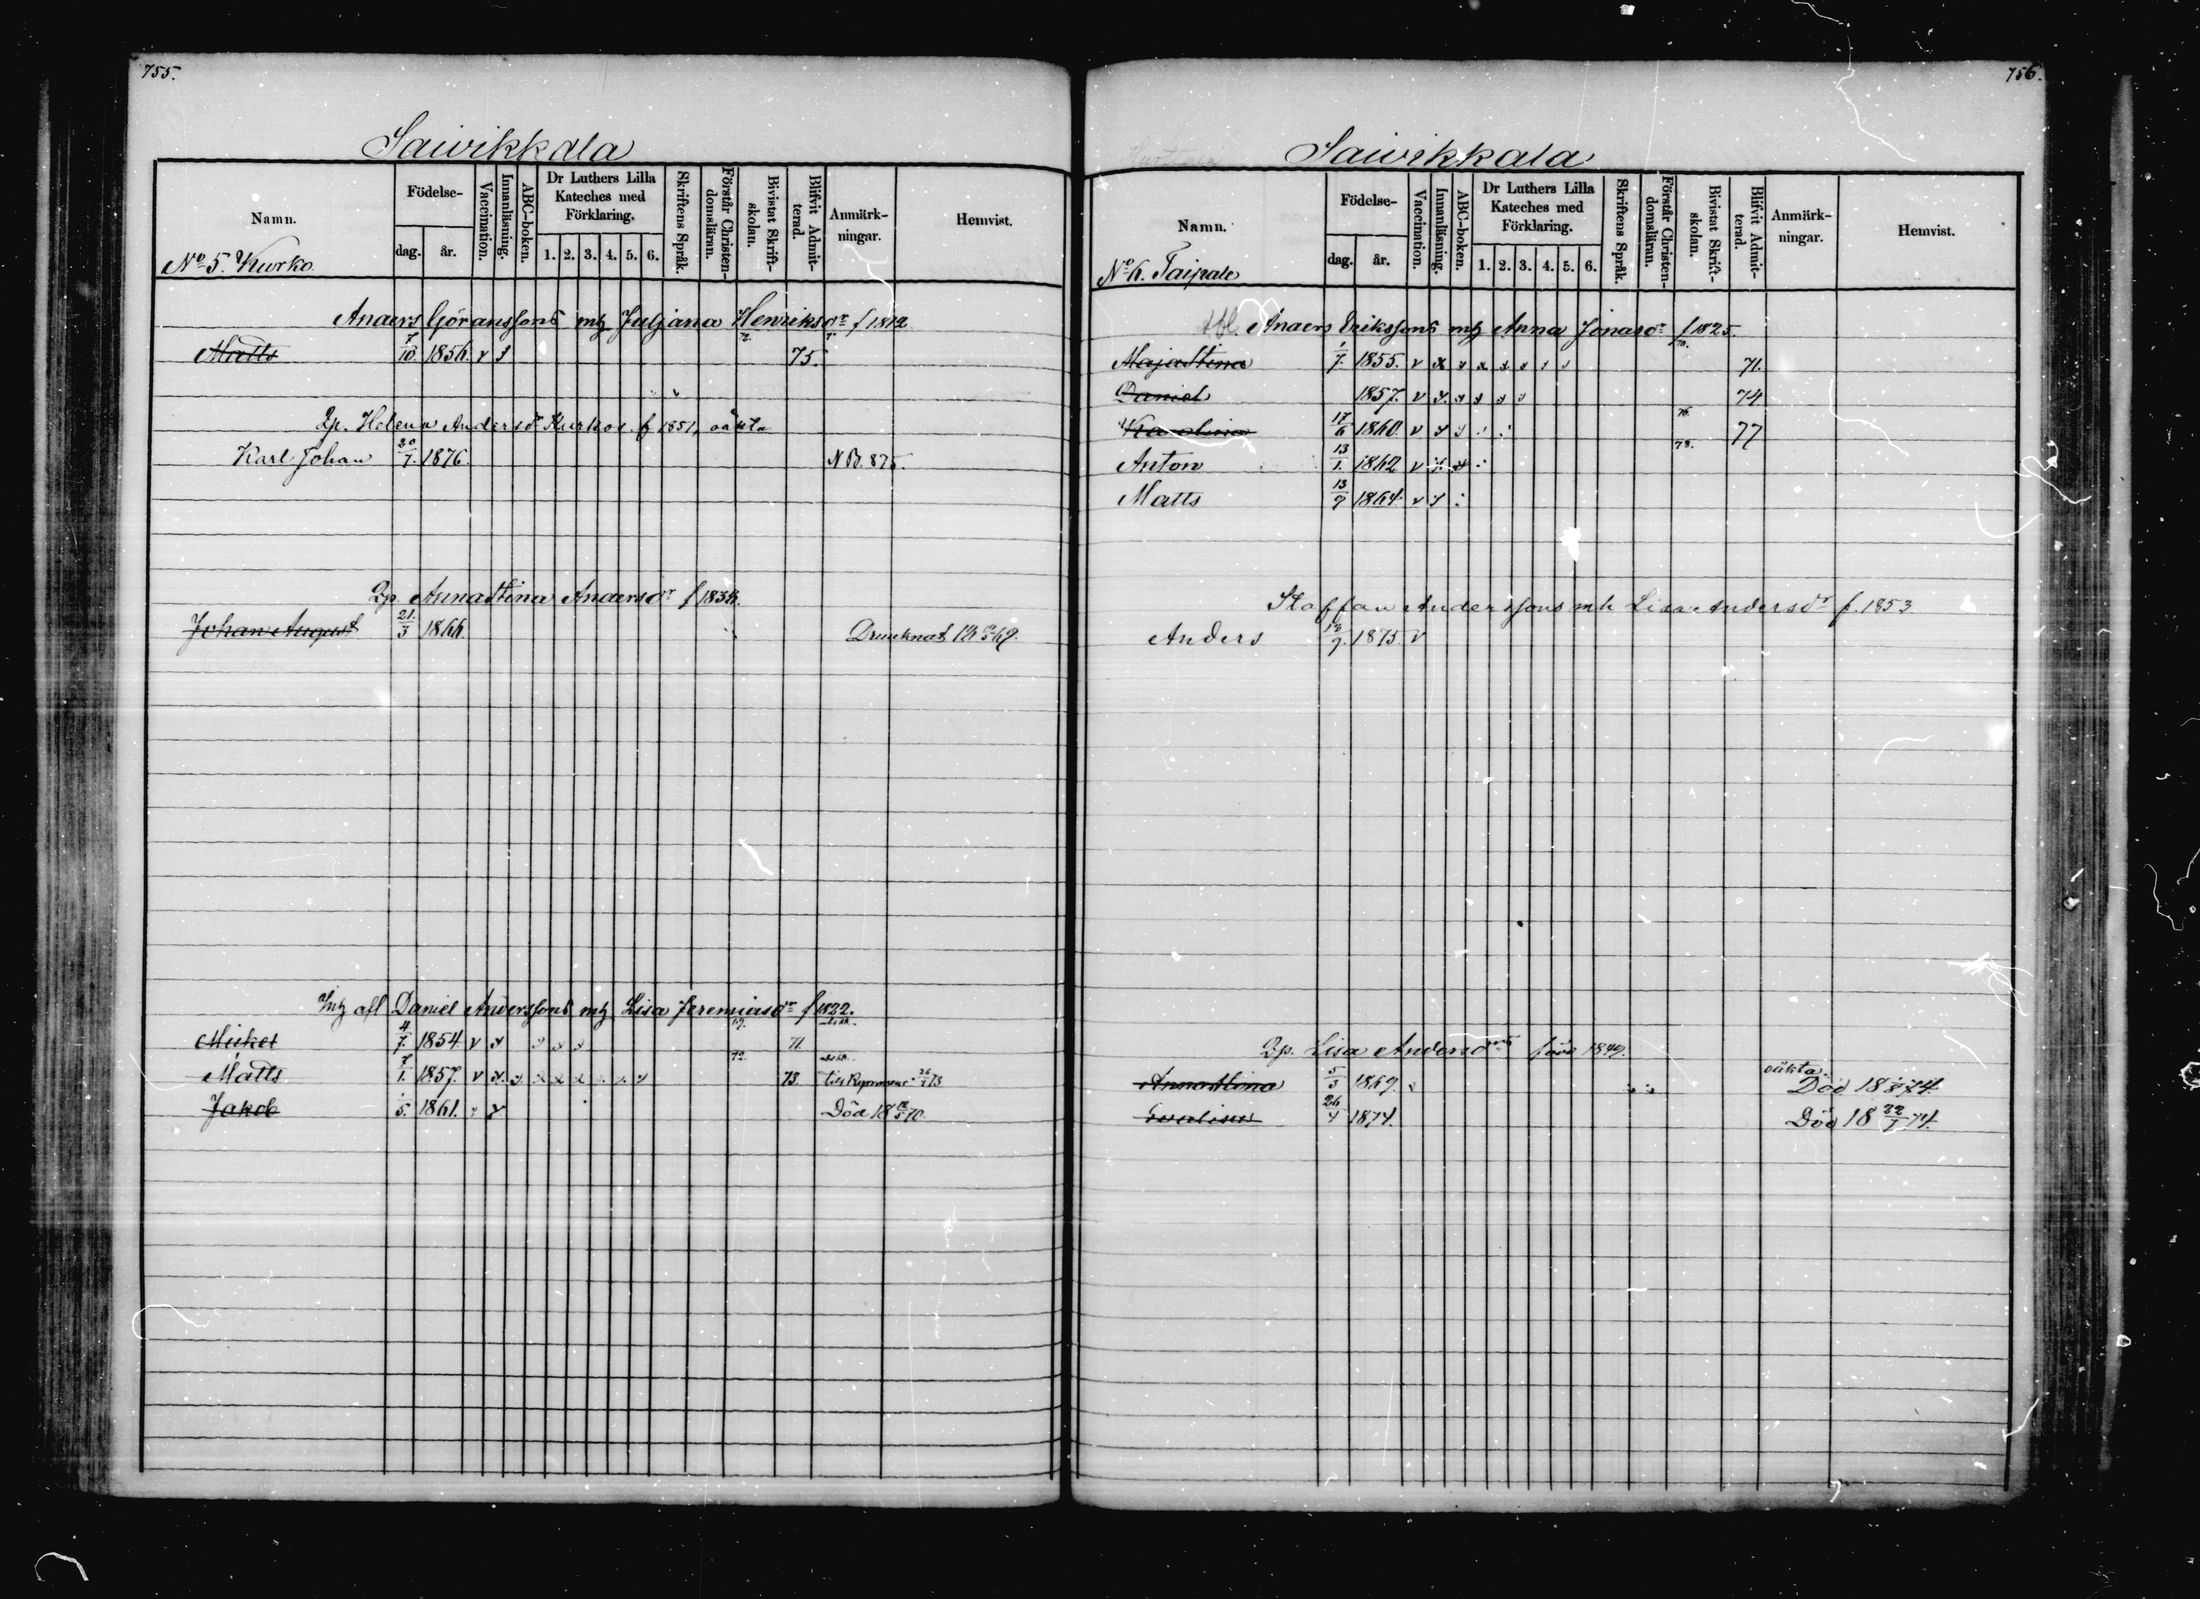 755.
Saivikkala
Namn.
Födelse-
dag.
år.
Vaccination.
Innanläsning.
ABC-boken.
Dr Luthers Lilla
Kateches med
Förklaring.
1. 2. 3. 4. 5. 6.
Skriftens Språk.
Förstår Christen-
domsläran.
Bivistat Skrift-
skolan.
Blifvit Admit-
terad.
Anmärk-
ningar.
Hemvist.
No 5. Kurko
Anders Göranssons mh Juljana Henriksdr f 1812
Matts 7/10 1856. v x 75.
Qp. Helena Andersdr Kurkos f 1851, oäkta
Karl Johan 30/7. 1876. N B. 875.
Qp. Anna Stina Andersdr f 1834.
Johan August 21./3 1866. Drunknat
Daniel Anderssons mh Lisa Jeremiasdr f 1822.
Mickel 4/7. 1854. v x x x x 71
Matts 7/1. 1857. v x x x x x x x x 72 73.
Jakob 1/5. 1861. v x Död 18 12/5 70.
756.
Saivikkala
Namn.
Födelse-
dag.
år.
Vaccination.
Innanläsning.
ABC-boken.
Dr Luthers Lilla
Kateches med
Förklaring.
1. 2. 3. 4. 5. 6.
Skriftens Språk.
Förstår Christen-
domsläran.
Bivistat Skrift-
skolan.
Blifvit Admit-
terad.
Anmärk-
ningar.
Hemvist.
No 6. Taipale
Anders Erikssons mh Anna Jonasdr f 1825.
Maja Stina 1/7. 1855. v x x x x x x x 70. 71.
Daniel 1857. v x x x x x 74
Karolina 17/6 1860. v x x 76. 77
Anton 13/1. 1862 v x x 78.
Matts 13/9 1864. v x
Staffan Anderssons mh Lisa Andersdr f. 1853
Anders 18/9. 1875 v
Qp. Lisa Andersdrs 1849.
oäkta.
Anna Stina 5/3 1869. Död
Evalisa 26/4 1874. Död 18 22/7 74.